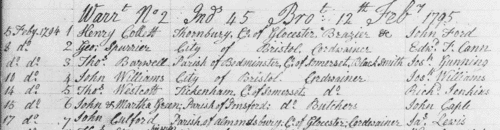 Warrt No 2 Ind 45 Brot 12th Feby 1795
5 Feby 1794 1 Henry Collett Thornbury, Co of Glocester Brazier & John Ford
8 do 2 Geo: Spurrier City of Bristol Cordwainer Edwd F. Cann
do do 3 Thos Barwell Parish of Bedminster, C. of Somerset, Black Smith Jos Gunning
10 do 4 John Williams City of Bristol Cordwainer Jos Williams
14 do 5 Thos Westcott Tickenham, C. of Somerset, do Richd Jenkins
16 do 6 John & Martha Green, Parish of do Butchers John Caple
17 do 7 John Parish of Almondsbury, C. of Glocester, Cordwainer Jas Lewis